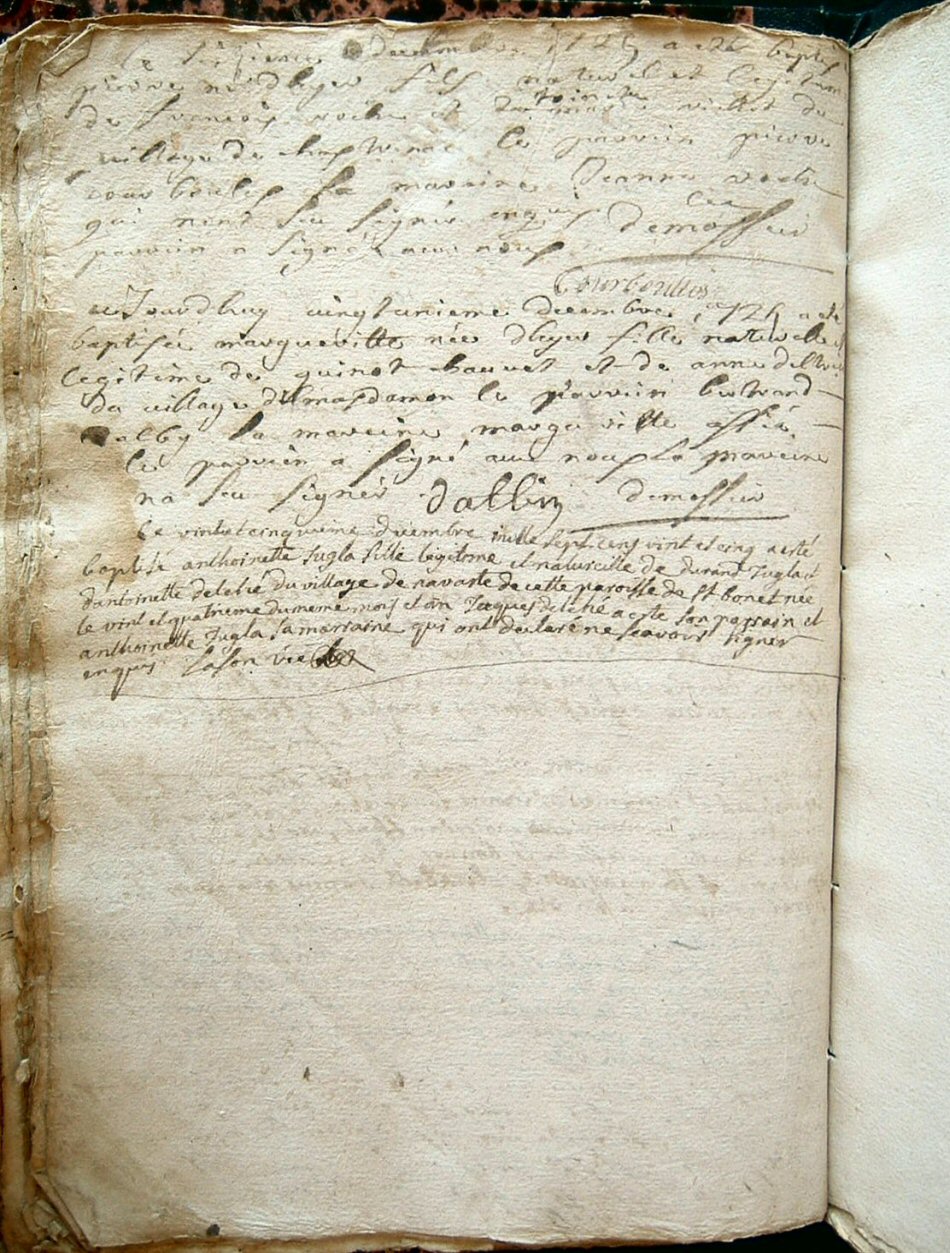 Le sixieme Decembre 1725 a esté baptisé
pierre né dhyer fils naturel et legitime
de francois roche et de toinette du
village de le parrein pierre
courboules la mareine Jeanne roche
qui nont seu signer enquis Les
parrein a signé avec nous demossier
Courboulles
aujourdhuy vingtunieme decembre 1725 a esté
baptiséé marguerittes néé dhyer fille naturelle et
legitime de guinot bauvet et de anne
du village delmasdamon le parrein bertrand
dalby la mareine margueritte
le parrein a signé avec nous la mareine
na seu signer dalbin demossier
Le vintetcinquieme decembre mille sept cens vint et cinq a esté
baptisé anthoinette Jugla fille legitime et naturelle de durand Jugla et
dantoinette delché du village de navaste de cette paroisse de st bonet née
le vint et quatrieme du meme mois et an Jacques delché a esté son parrain et
anthoinette Jugla sa marraine qui ont declaré ne scavoir signer
enquis Lason vic